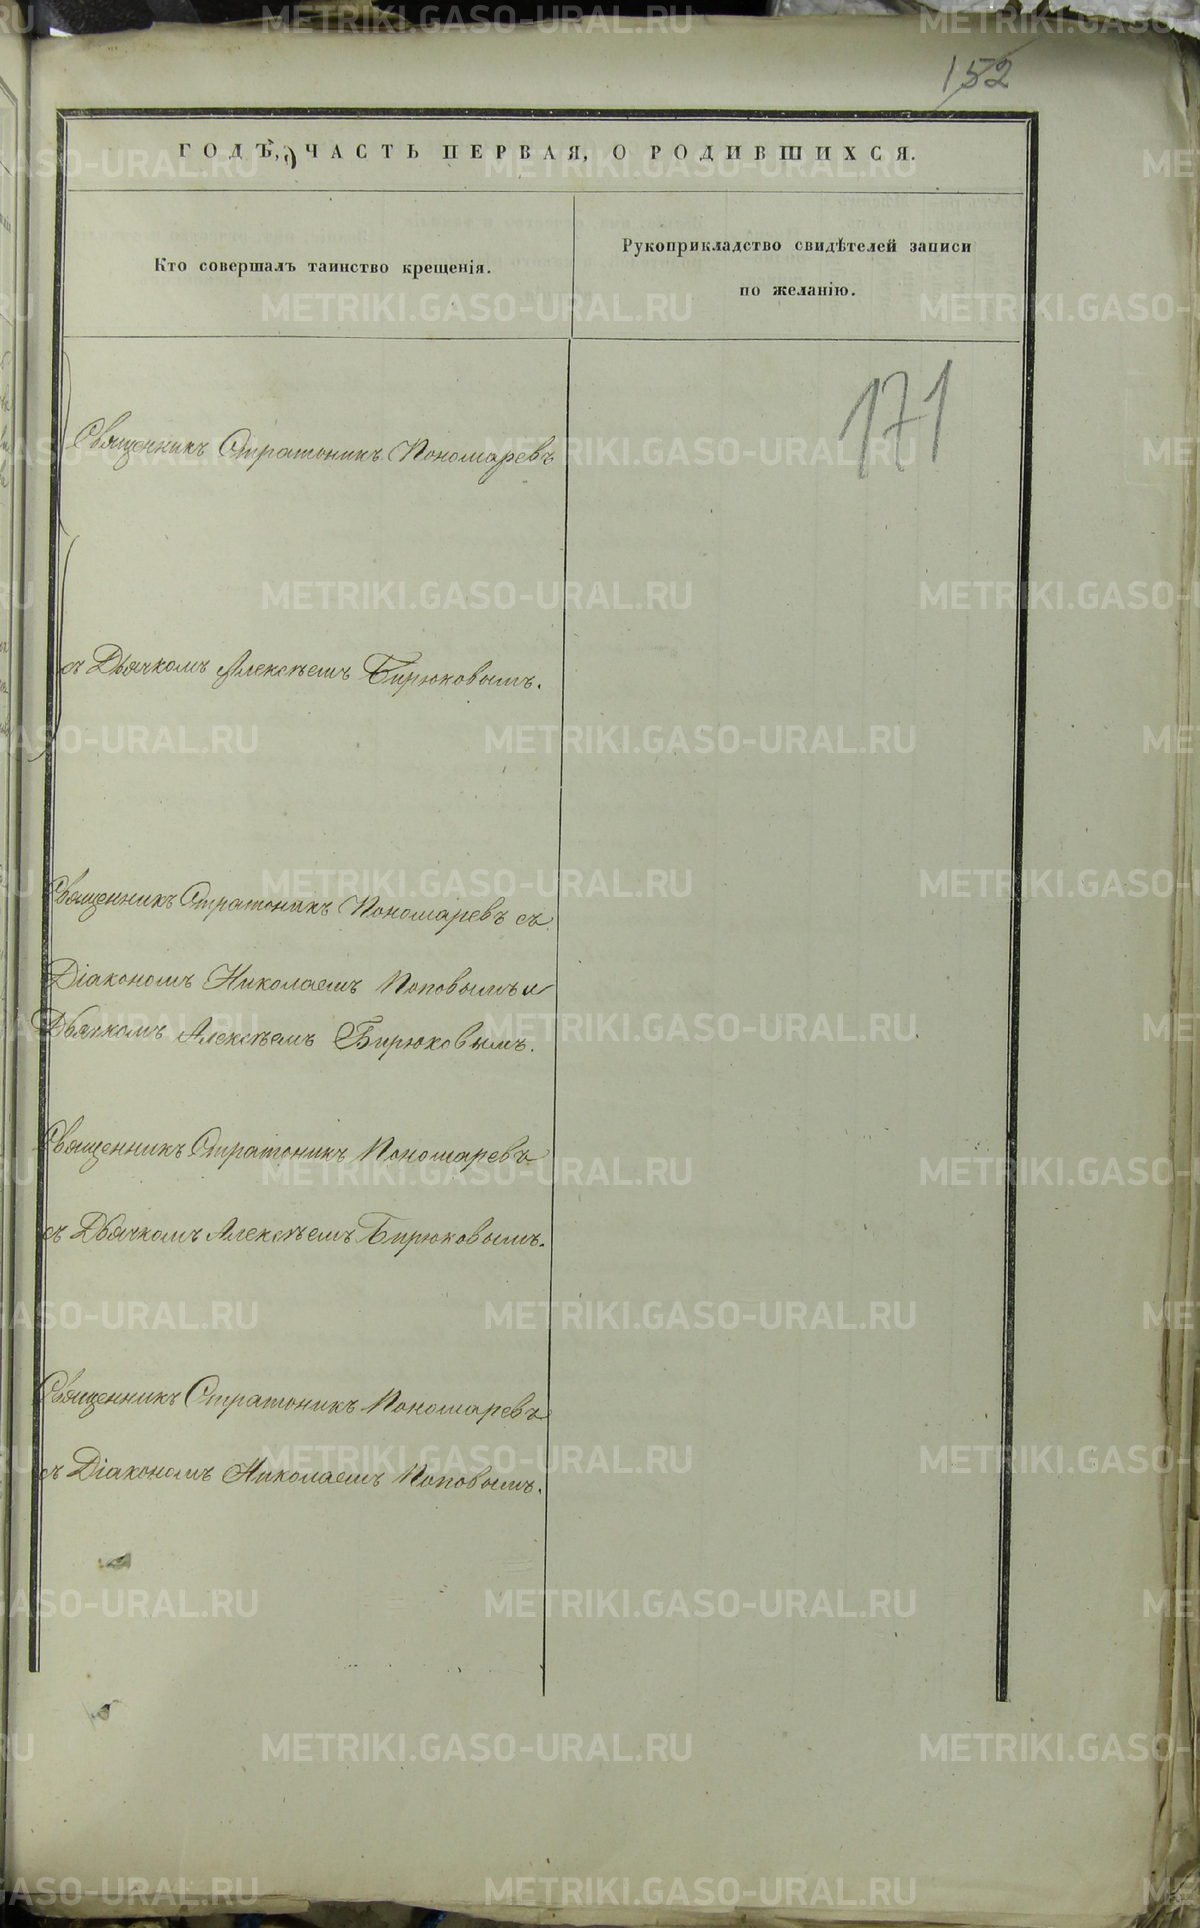 152
ГОДЪ, ЧАСТЬ ПЕРВАЯ, О РОДИВШИХСЯ.
Кто совершалъ таинство крещенія.
Рукоприкладство свидѣтелей записи
по желанію.
171
Священникъ Стратоникъ Пономаревъ
съ Дьячкомъ Алексѣемъ Бирюковымъ.
Священникъ Стратоникъ Пономаревъ съ
Діакономъ Николаемъ Поповымъ и
Дьячкомъ Алексѣемъ Бирюковымъ.
Священникъ Стратоникъ Пономаревъ
съ Дьячкомъ Алексѣемъ Бирюковымъ.
Священникъ Стратоникъ Пономаревъ
съ Діакономъ Николаемъ Поповымъ.
METRIKI.GASO-URAL.RU